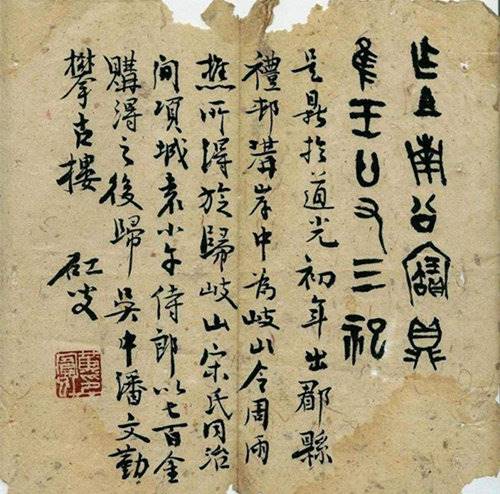 乍且南公寶鼎
隹王廿又三祀
是鼎於道光初年出郿縣
禮邨溝岸中為岐山令周雨
樵所得旋歸岐山宋氏同治
間項城袁小午侍郎以七百金
購得之後歸吳中潘文勤
攀古樓
虹叟